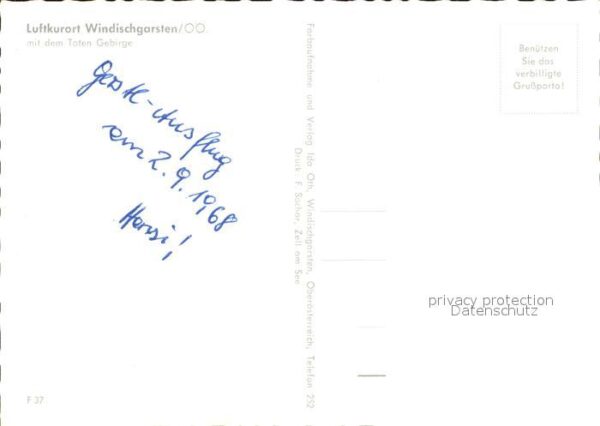 Luftkurort Windischgarsten/OÖ
mit dem Toten Gebirge
Ausflug
am 2. 9. 1968
Hansi!
Farbaufnahme und Verlag Ida Oth, Windischgarsten, Oberösterreich, Telefon 252
Druck: F. Sochor, Zell am See
Benützen
Sie das
verbilligte
Grußporto!
privacy protection
Datenschutz
F 37